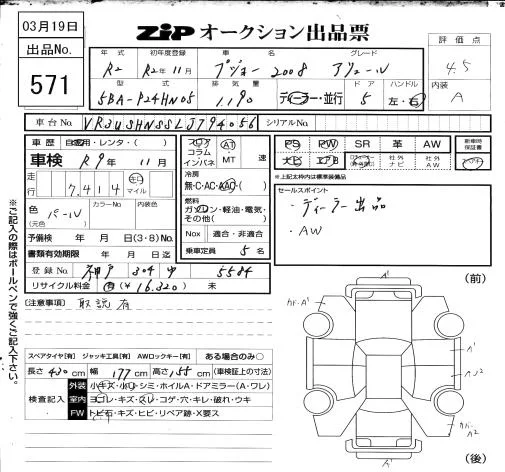 03月19日
出品No.
571
ZiP オークション出品票
年式 初年度登録 車名 グレード
R2 R2年11月 プジョー2008 アリュール
型式 排気量 ドア ハンドル
5BA-P24HN05 1,190 ディーラー・並行 5 左・右
評価点
4.5
内装
A
車台No. VR3USHNSSLJ794056 シリアルNo.
車歴 自家用・レンタ・( )
車検 R9年 11月
走行 7,414 キロ マイル
色(元色) パール カラーNo. 内装色
予備検 年 月 日(3・8)No.
書類有効期限 年 月 日
登録No. 神戸 304 ゆ 5584
リサイクル料金 有(¥16,320) 未
フロア コラム インパネ AT MT 速
冷房
無・C・AC・AAC・( )
燃料
ガソリン・軽油・電気・その他( )
Nox 適合・非適合
乗車定員 5 名
PS PW SR 革 AW
ナビ エアB 社外ナビ 社外AW
新車時保証書
※上記太枠内は標準装備品
セールスポイント
・ディーラー出品
・AW
[注意事項] 取説有
スペアタイヤ[有] ジャッキ工具[有] AWロックキー[有] ある場合のみ○
長さ 430 cm 幅 177 cm 高さ 155 cm (車検証上の寸法)
検査記入
外装 小キズ・小凹・シミ・ホイルA・ドアミラー(A・ワレ)
室内 ヨゴレ・キズ・スレ・コゲ・穴・キレ・破れ・ウキ
FW トビ石・キズ・ヒビ・リペア跡・X要ス
※ご記入の際はボールペンで強くご記入下さい。
(前)
A'
カド・A'
A'
A'
カバーA2
A'
(後)